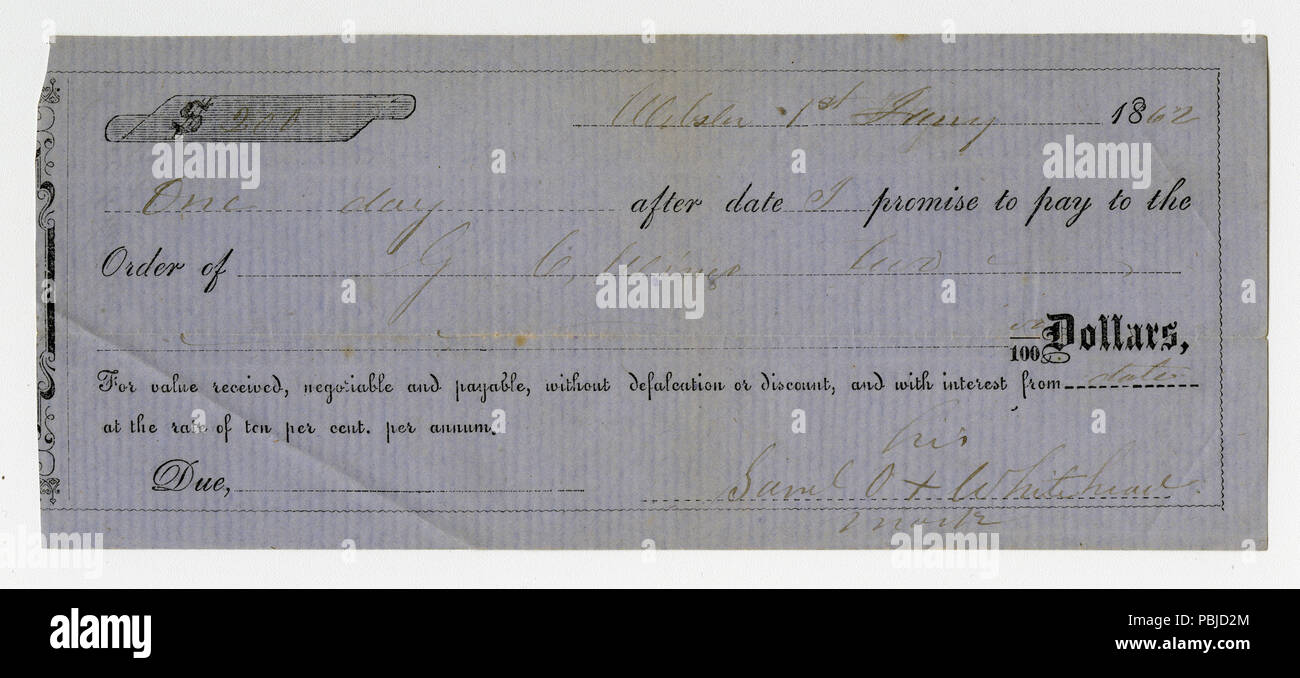 $ 200
1st 1862
One day after date I promise to pay to the
Order of G C two
100 Dollars,
For value received, negotiable and payable, without defalcation or discount, and with interest from date
at the rate of ten per cent. per annum.
his
Due, Saml O + Whitehead
mark
a alamy
alamy
Image ID: PBJD2M
www.alamy.com